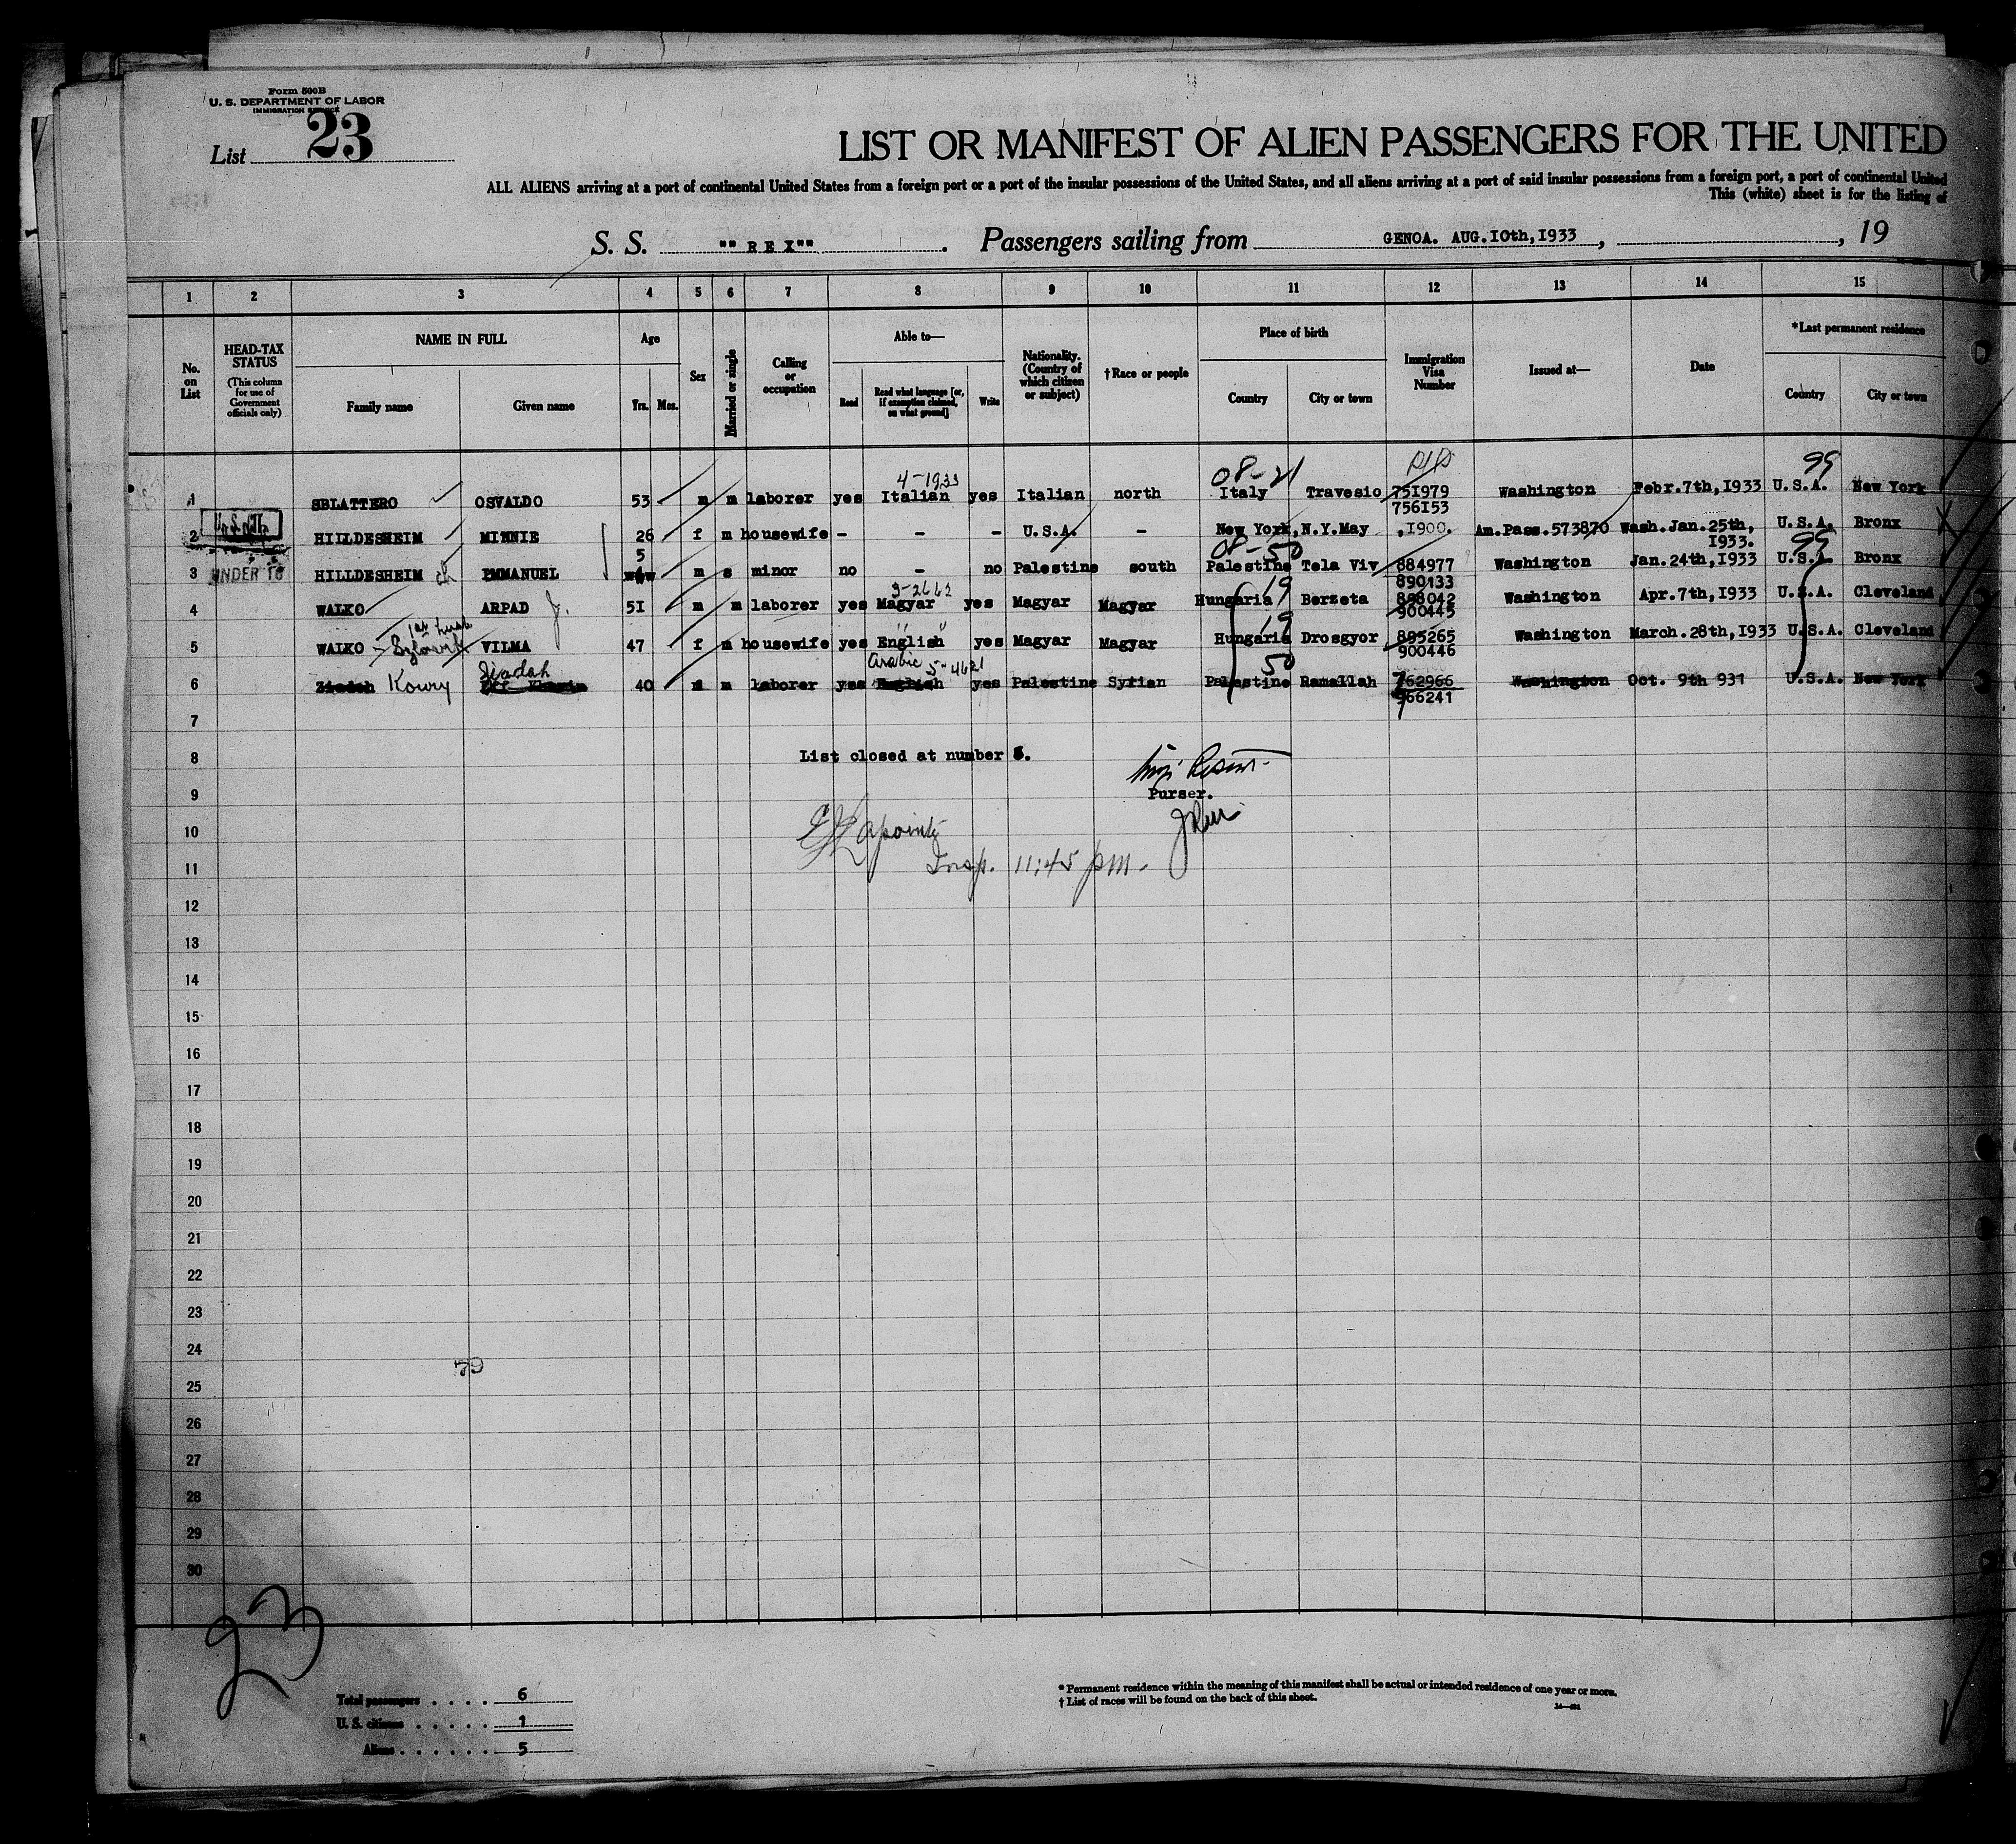 Form 500B
U. S. DEPARTMENT OF LABOR
IMMIGRATION SERVICE
List 23
LIST OR MANIFEST OF ALIEN PASSENGERS FOR THE UNITED
ALL ALIENS arriving at a port of continental United States from a foreign port or a port of the insular possessions of the United States, and all aliens arriving at a port of said insular possessions from a foreign port, a port of continental United
This (white) sheet is for the listing of
S. S. "" R E X"" . Passengers sailing from GENOA. AUG.10th,1933 , , 19
1 2 3 4 5 6 7 8 9 10 11 12 13 14 15
No. on List
HEAD-TAX STATUS (This column for use of Government officials only)
NAME IN FULL
Family name Given name
Age
Yrs. Mos.
Sex
Married or single
Calling or occupation
Able to—
Read Read what language [or, if exemption claimed, on what ground] Write
Nationality. (Country of which citizen or subject)
†Race or people
Place of birth
Country City or town
Immigration Visa Number
Issued at—
Date
*Last permanent residence
Country City or town
4-1933 08-21 99
1 SBLATTERO OSVALDO 53 m m laborer yes Italian yes Italian north Italy Travesio 751979 Washington Febr.7th,1933 U.S.A. New York
756153
2 HILLDESHEIM MINNIE 26 f m housewife - - - U.S.A. - New York,N.Y.May ,1900. Am.Pass.573870 Wash.Jan.25th, U.S.A. Bronx
1933.
5 08-50 99
3 UNDER 16 HILLDESHEIM ch EMMANUEL m s minor no - no Palestine south Palestine Tela Viv 884977 Washington Jan.24th,1933 U.S.A. Bronx
890133
19
4 WALKO ARPAD J. 51 m m laborer yes Magyar yes Magyar Magyar Hungaria Berzeta 898042 Washington Apr.7th,1933 U.S.A. Cleveland
900445
1st husb. " " 19
5 WALKO VILMA 47 f m housewife yes English yes Magyar Magyar Hungaria Drosgyor 895265 Washington March.28th,1933 U.S.A. Cleveland
900446
Ziadah Arabic 5-4621 50
6 Ziadah Kowry 40 m m laborer yes English yes Palestine Syrian Palestine Ramallah 762966 Washington Oct. 9th 931 U.S.A. New York
766241
7
8 List closed at number 6.
9 Purser.
10
11 Insp. 11:45 pm.
12
13
14
15
16
17
18
19
20
21
22
23
24
79
25
26
27
28
29
30
23
Total passengers . . . . 6
U. S. citizens . . . . . 1
Aliens . . . . . . 5
* Permanent residence within the meaning of this manifest shall be actual or intended residence of one year or more.
† List of races will be found on the back of this sheet.